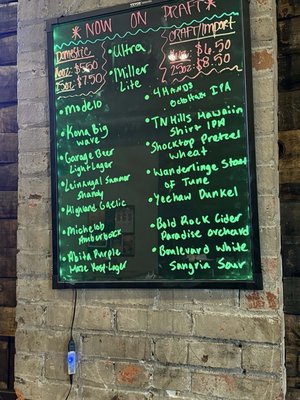 *NOW ON DRAFT*
Domestic
16oz: $5.00
25oz: $7.50
• Ultra
• Miller
Lite
CRAFT/IMPORT
16oz: $6.50
25oz: $8.50
• Modelo
• Kona Big
wave
• Garage Beer
Light Lager
• Leinangal Summer
Shandy
• Highland Gaelic
• Michelob
Amberbock
• Abita Purple
Haze Rost-Lager
• 4 Hands
IPA
• TN Hills Hawaiin
Shirt IPA
• Shocktop Pretzel
wheat
• Wanderlinge State
of Tune
• Yechaw Dunkel
• Bold Rock Cider
Paradise orchard
• Boulevard White
Sangria Sour